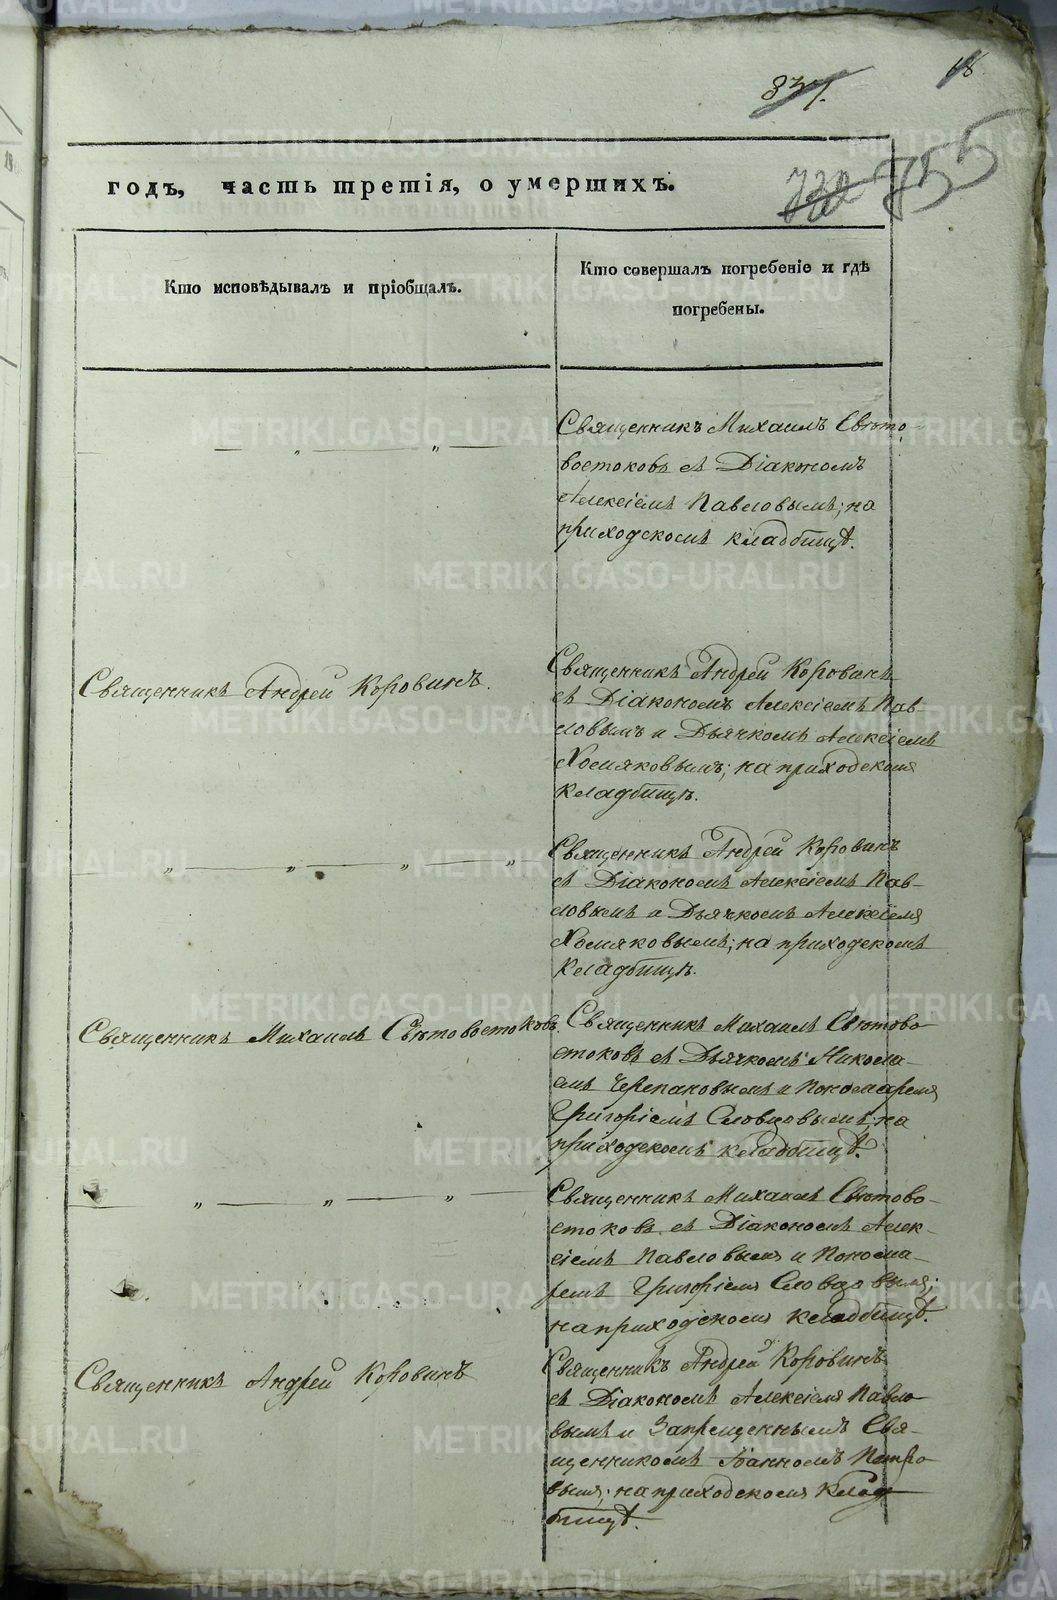 837.
18
732 755
годъ, часть третія, о умершихъ.
Кто исповѣдывалъ и пріобщалъ.
Кто совершалъ погребеніе и гдѣ
погребены.
Священникъ Михаилъ Свѣто-
востоковъ съ Діакономъ
Алексіемъ Павловымъ; на
приходскомъ кладбищѣ.
Священникъ Андрей Коровинъ.
Священникъ Андрей Коровинъ
съ Діакономъ Алексіемъ Пав-
ловымъ и Дьячкомъ Алексіемъ
Хомяковымъ; на приходскомъ
кладбищѣ.
Священникъ Андрей Коровинъ
съ Діакономъ Алексіемъ Пав-
ловымъ и Дьячкомъ Алексіемъ
Хомяковымъ; на приходскомъ
кладбищѣ.
Священникъ Михаилъ Свѣтовостоковъ.
Священникъ Михаилъ Свѣтово-
стоковъ съ Дьячкомъ Никола-
емъ Черепановымъ и Пономаремъ
Григоріемъ Словцовымъ; на
приходскомъ кладбищѣ.
Священникъ Михаилъ Свѣтово-
стоковъ съ Діакономъ Алек-
сіемъ Павловымъ и Понома-
ремъ Григоріемъ Словцовымъ;
на приходскомъ кладбищѣ.
Священникъ Андрей Коровинъ
Священникъ Андрей Коровинъ
съ Діакономъ Алексіемъ Павло-
вымъ и Запрещеннымъ Свя-
щенникомъ Іоанномъ Петро-
вымъ; на приходскомъ клад-
бищѣ.
METRIKI.GASO-URAL.RU